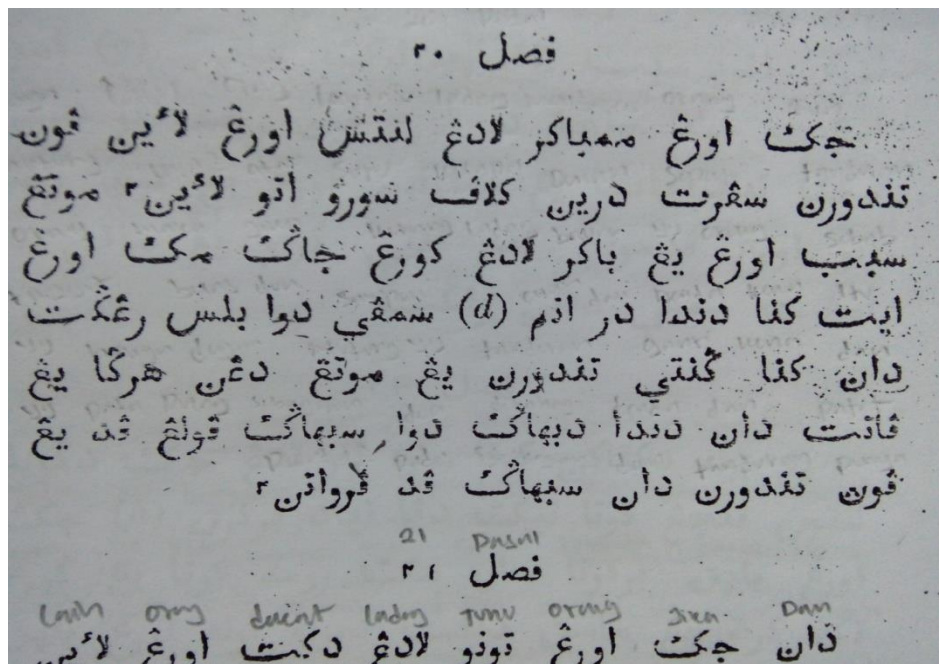 فصل ٢٠
جک اورڠ ممباکر لادڠ لنتس اورڠ لائين ڤون
تندورن سڤرت درين کلاف سورو اتو لائين٢ موتڠ
سبب اورڠ يڠ باکر لادڠ کورڠ جاݢ مک اورڠ
ايت کنا دندا در انم (d) سمڤي دوا بلس رڠݢت
دان کنا ݢنتي تندورن يڠ موتڠ دڠن هرݢا يڠ
ڤاتت دان دندا دبهاݢ دوا سبهاݢ ڤولڠ ڤد يڠ
ڤون تندورن دان سبهاݢ ڤد ڤرواتن٢
21 pasal
فصل ٢١
Lain orang dekat ladang tunu orang jika Dan
دان جک اورڠ تونو لادڠ دکت اورڠ لائين